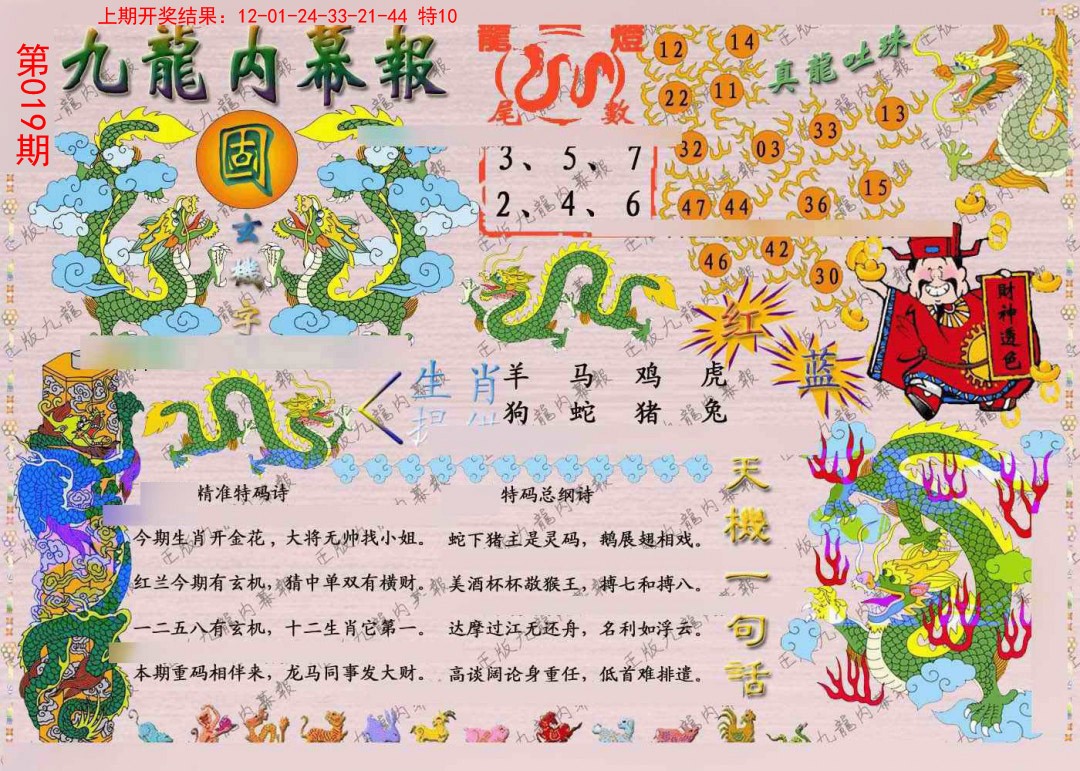 上期开奖结果：12-01-24-33-21-44 特10
第019期
九龍内幕報
固
玄
機
字
龍 燈
尾 数
3、5、7
2、4、6
真龍吐珠
12 14
22 11
33 13
32 03
15
47 44 36
46 42 30
红
蓝
財神透色
生肖
羊 马 鸡 虎
狗 蛇 猪 兔
精准特码诗
今期生肖开金花，大将无帅找小姐。
红兰今期有玄机，猜中单双有横财。
一二五八有玄机，十二生肖它第一。
本期重码相伴来，龙马同事发大财。
特码总纲诗
蛇下猪主是灵码，鹅展翅相戏。
美酒杯杯敬猴王，搏七和搏八。
达摩过江无还舟，名利如浮云。
高谈阔论身重任，低首难排遣。
天機一句話
正版九龍内幕報